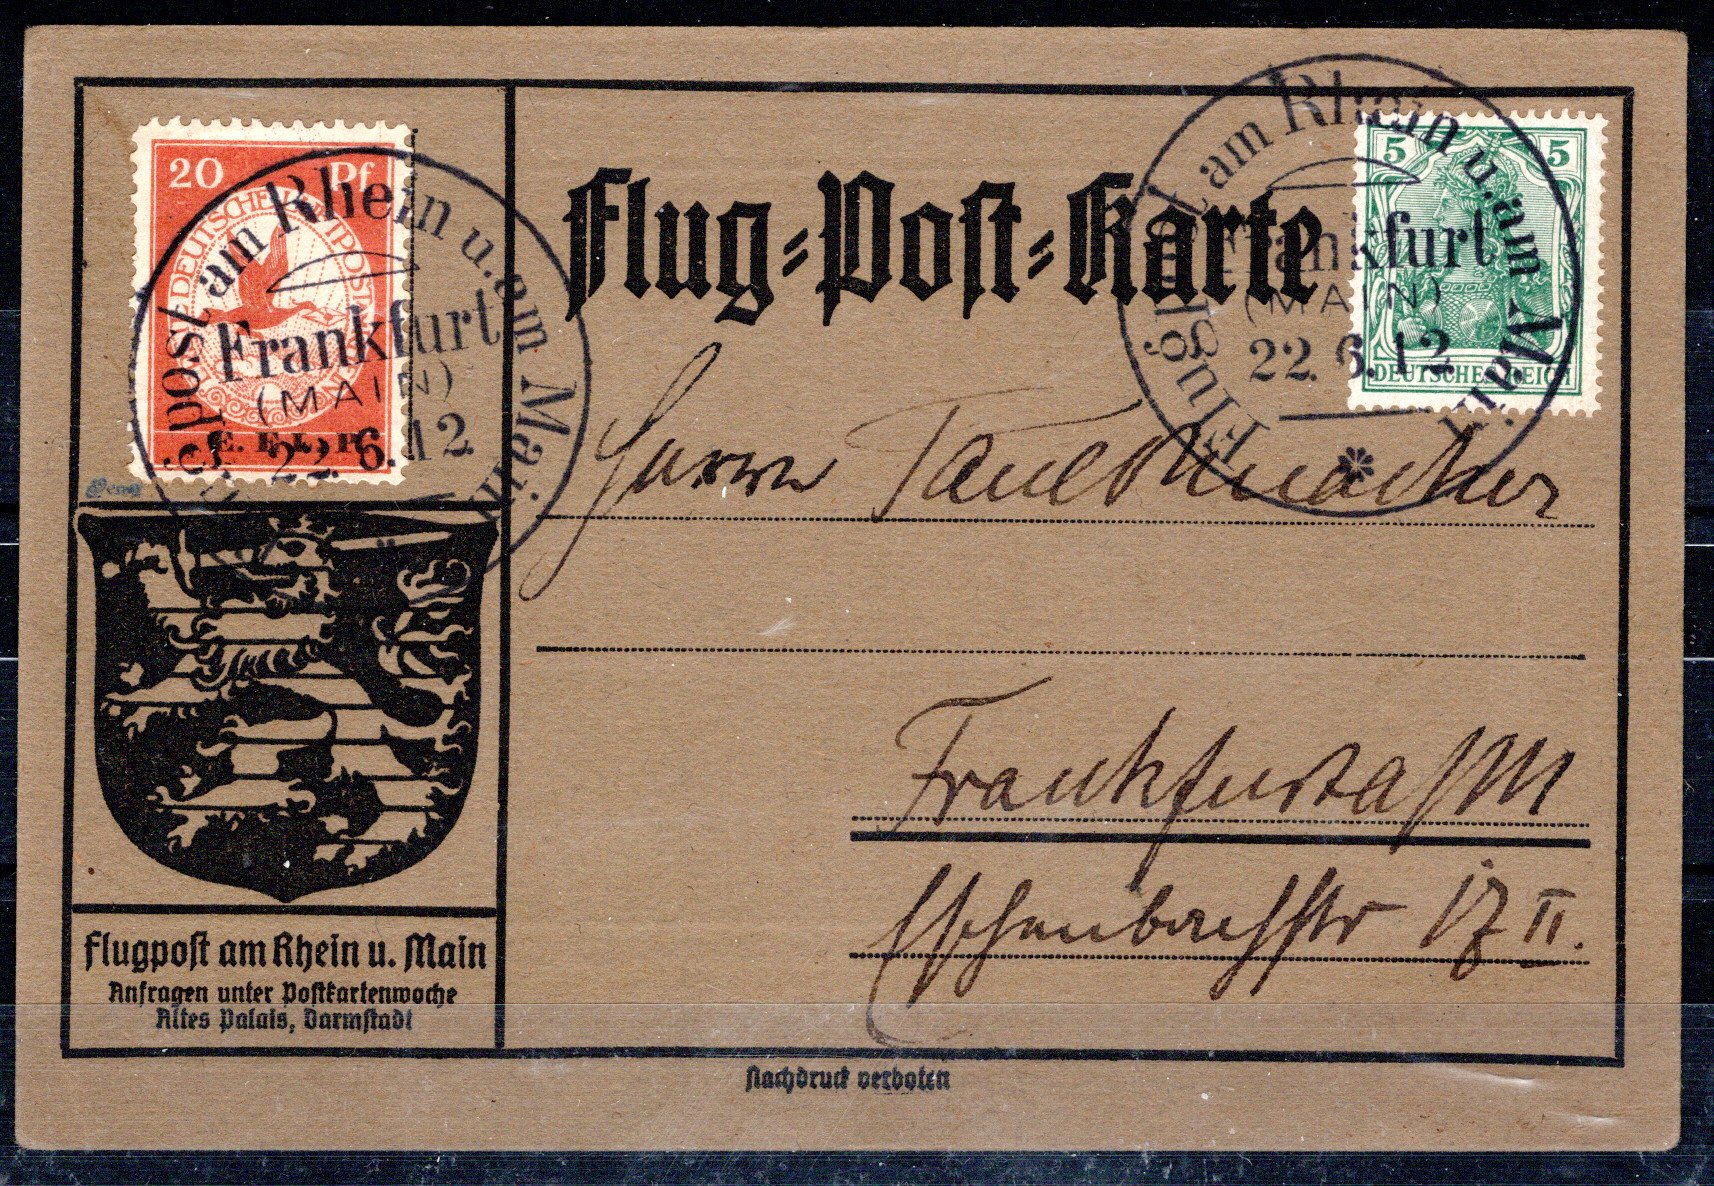 20 Pf
DEUTSCHE FLUGPOST AM RHEIN
E. EL. P.
Flugpost am Rhein u. am Main
Frankfurt
(MAIN)
22.6.12
Flug=Post=Karte
Flugpost am Rhein u. am Main
Frankfurt
(MAIN)
22.6.12
5 5
DEUTSCHES REICH
Herrn
Frankfurt a/M
17 II.
Flugpost am Rhein u. Main
Anfragen unter Postkartenwoche
Altes Palais, Darmstadt
Nachdruck verboten